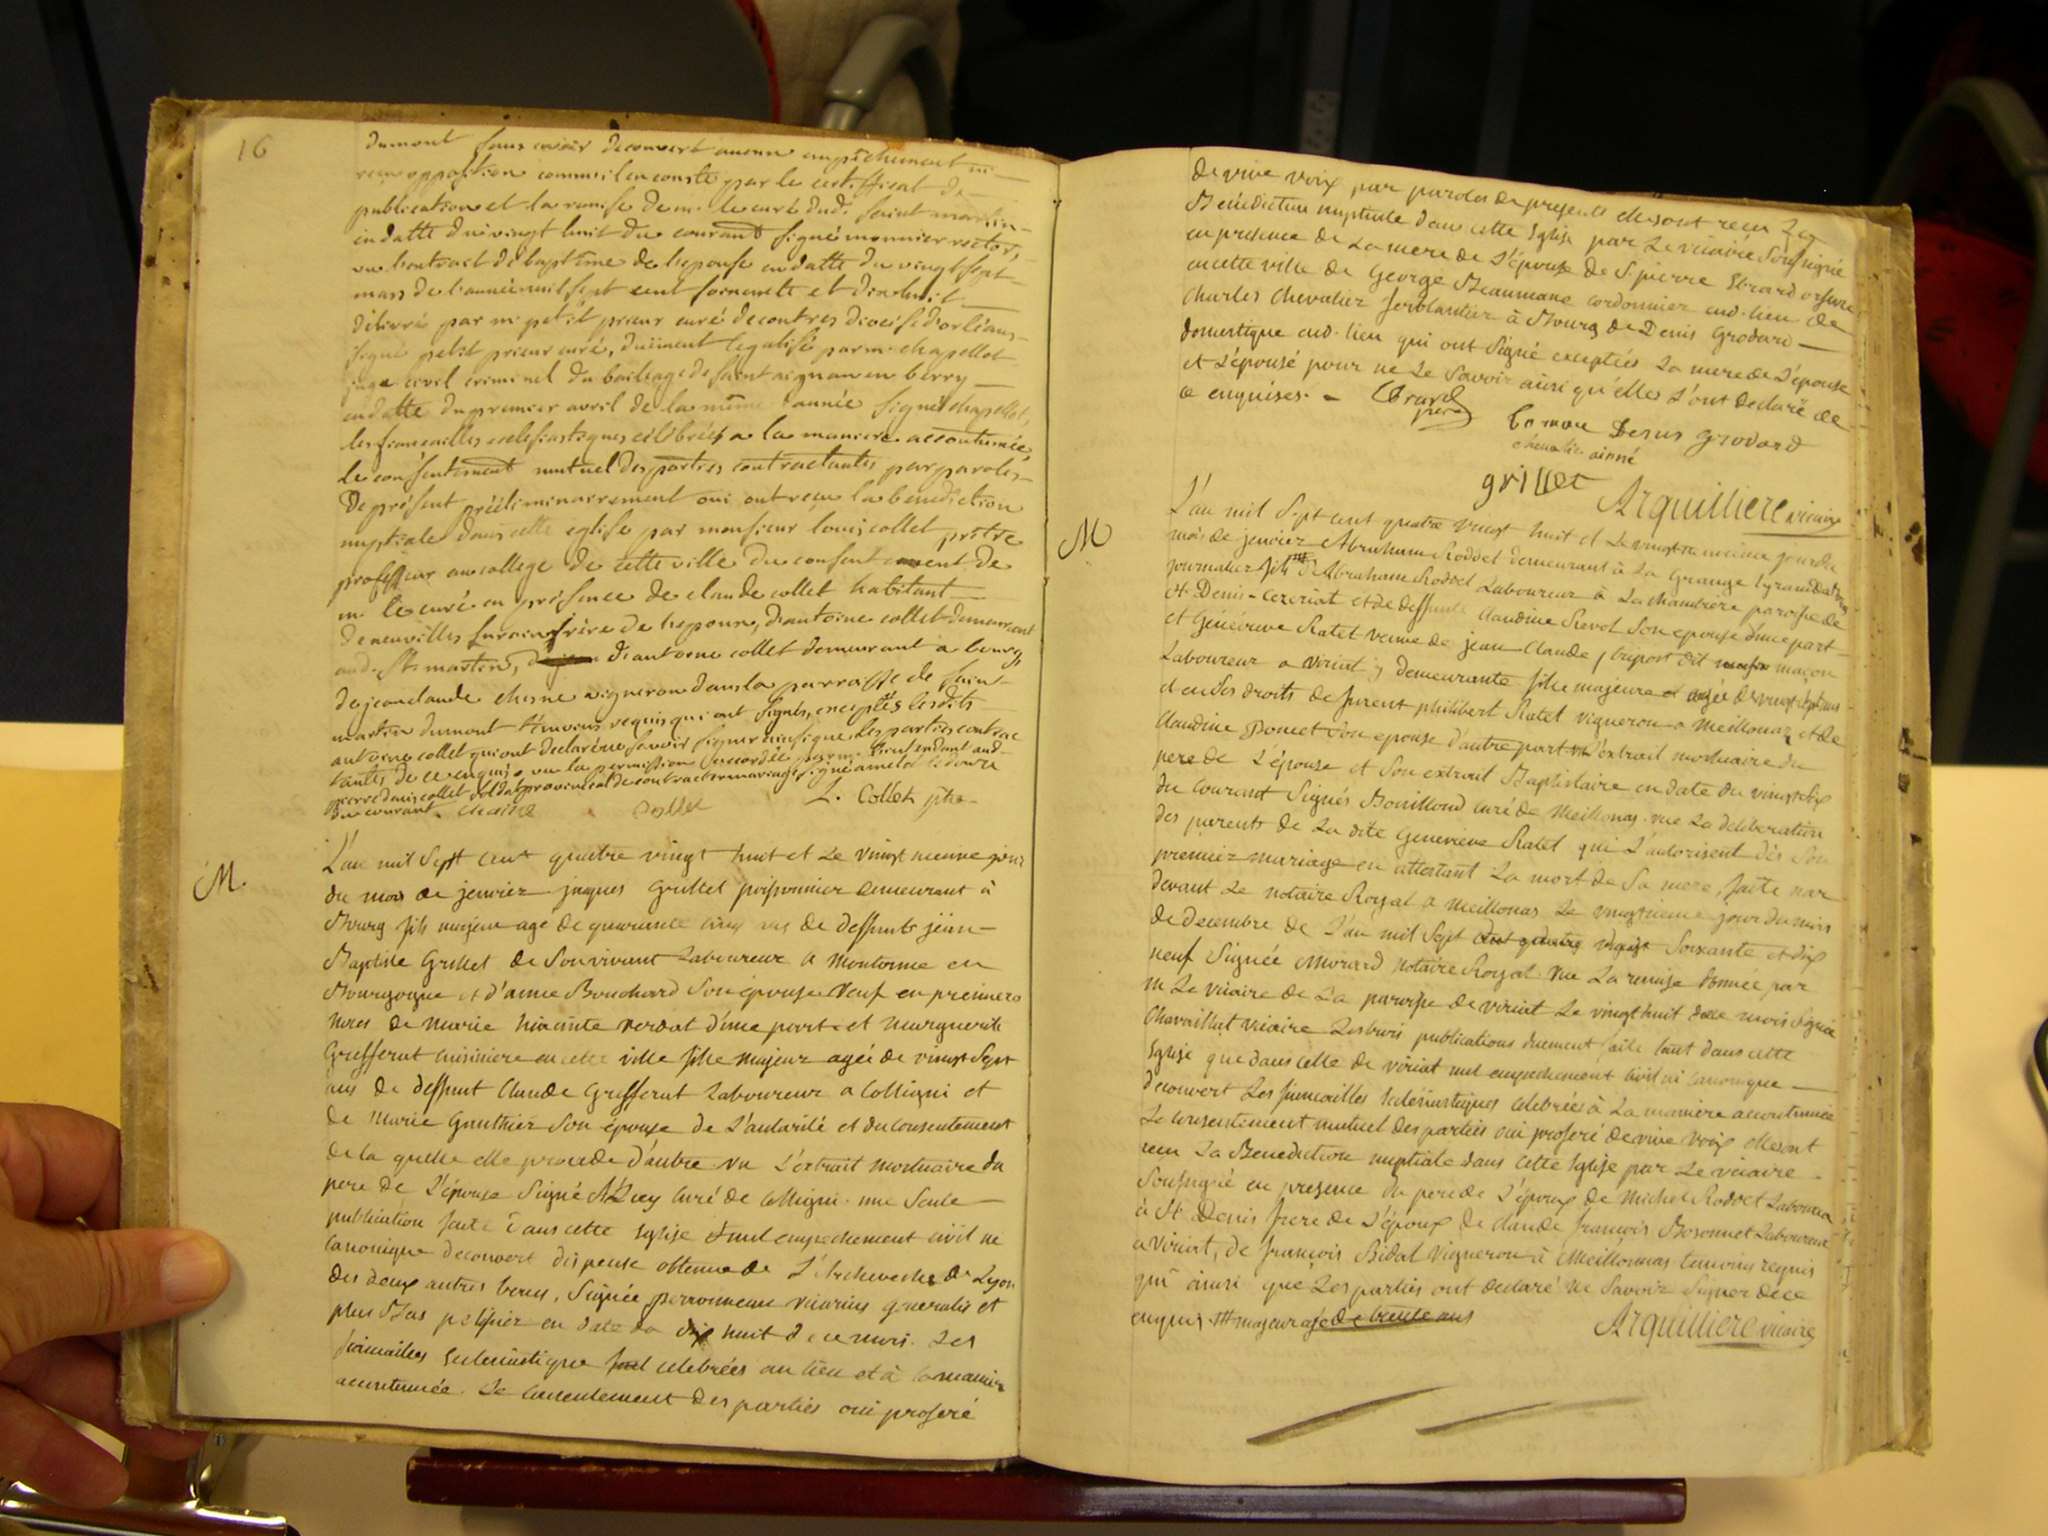 16
dumont sans avoir decouvert aucun empechement ni
reçu opposition comme il en conste par le certifficat de
publication et la remise de m. le curé dud. saint martin
en datte du vingt huit du courant signé monnier rector,
vu l'extrait de baptême de l'epouse en datte du vingt sept
mars de l'année mil sept cent soixante et dix huit
délivré par m. petit prieur curé de contres diocise d'orléans
signé petit prieur curé, duëment legalisé par m. chapellot
juge civil criminel du bailliage de saint aignan en berry
en datte du premier avril de la même année signé chapellot,
les fiancailles eclesiastiques célébrées a la maniere accoutumée,
le consentement mutuel des parties contractantes par paroles
de présent préliminairement oui ont reçu la benediction
nuptiale dans cette eglise par monsieur louis collet prêtre
professeur au college de cette ville du consentement de
m. le curé en présence de claude collet habitant
de neuville sur ain frère de l'epoux, d'antoine collet demeurant
aud. St. martin, d'antoine collet demeurant a bourg,
de jean claude chesne vigneron dans la parroisse de saint
martin dumont témoins requis qui ont signés, exceptés lesdits
antoine collet qui ont declaré ne savoir signer ainsi que les parties contrac
tantes de ce enquis. vu la permission accordée par m. l'intendant aud.
pierre denis collet soldat provincial de contracter mariage signé amelot
du courant. chaine collet L. Collet ptre.
M.
L'an mil sept cent quatre vingt huit et le vingt neuvme jour
du mois de janvier jaques Grillet poissonnier demeurant à
Bourg fils majeur agé de quarante cinq ans de deffunts jean
Baptiste Grillet de son vivant Laboureur a Montorme en
Bourgogne et d'anne Bouchard son épouse veuf en premiere
noces de Marie hiacinte verdat d'une part et Marguerite
Grefferat cuisiniere en cette ville fille majeur agée de vingt sept
ans de deffunt Claude Grefferat Laboureur a Colligni et
de Marie Gauthier son épouse de l'autorité et du consentement
de la quelle elle procede d'autre vu l'extrait mortuaire du
pere de l'épouse signé curé de Colligni. une seule
publication faite dans cette Eglise et nul empechement civil ne
canonique decouvert dispense obtenue de L'Archeveché de Lyon
des deux autres bans, signée perronneau vicarius generalis et
plus Bas en date du dix huit de ce mois. Les
fiancailles Eclesiastique celebrées au lieu et à la maniere
accoutumée. Le Consentement des parties oui proferé
de vive voix par paroles de presents elles ont recu La
Bénédiction nuptiale dans cette Eglise par Le vicaire soussigné
en presence de La mere de L'épouse de Sr. pierre Ebrard orfevre
en cette ville de George Beaumane cordonnier aud. lieu de
Charles Chevalier ferblantier à Bourg de Denis Grodard
domestique aud. lieu qui ont signé exceptées La mere de L'épouse
et L'épouse pour ne Le savoir ainsi qu'elles L'ont declaré de
ce enquises. Ebrard
pere
Bomane Denis grodard
chevalie ainné
grillet
Arquilliere vicaire
M
L'an mil sept cent quatre vingt huit et Le vingt neuvieme jour du
mois de janvier Abraham Roddet demeurant à La Grange
journalier fils d'Abraham Roddet Laboureur à La chambiere paroisse de
St. Denis-Ceseriat et de deffunte Claudine Revol son epouse d'une part
et Généreuve Ratet veuve de jean Claude dit maçon
Laboureur a viriat y demeurante fille majeure agée de vingt sept ans
et en ses droits de furent philibert Ratet vigneron a Meillonaz et de
Claudine Poncet son epouse d'autre part vu L'extrait mortuaire du
pere de L'épouse et son extrait Baptistaire en date du vingt six
du courant signés Bouilloud curé de Meillonas. vue La deliberation
des parents de La dite Genevieve Ratet qui L'autorisent dès son
premier mariage en attestant La mort de sa mere, faite par
devant Le notaire Royal a Meillonas Le vingtieme jour du mois
de decembre de L'an mil sept soixante et dix
neuf signée Morard notaire Royal vue La remise donnée par
m Le vicaire de La paroisse de viriat Le vingt huit de ce mois signée
Chavaillut vicaire Les trois publications duement faite tant dans cette
Eglise que dans celle de viriat nul empechement civil ni canonique
decouvert Les fiancailles Eclésiastiques celebrées à La maniere accoutumée
Le consentement mutuel des parties oui proferé de vive voix elles ont
recu La Bénédiction nuptiale dans cette Eglise par Le vicaire
soussigné en presence du pere de L'époux de Michel Roddet Laboureur
à St. Denis frere de L'époux de Claude françois Bosonnet Laboureur
a viriat, de françois Bidal vigneron à Meillonnas temoins requis
qui ainsi que Les parties ont declaré ne savoir signer de ce
enquis. majeur agé de trente ans
Arquilliere vicaire